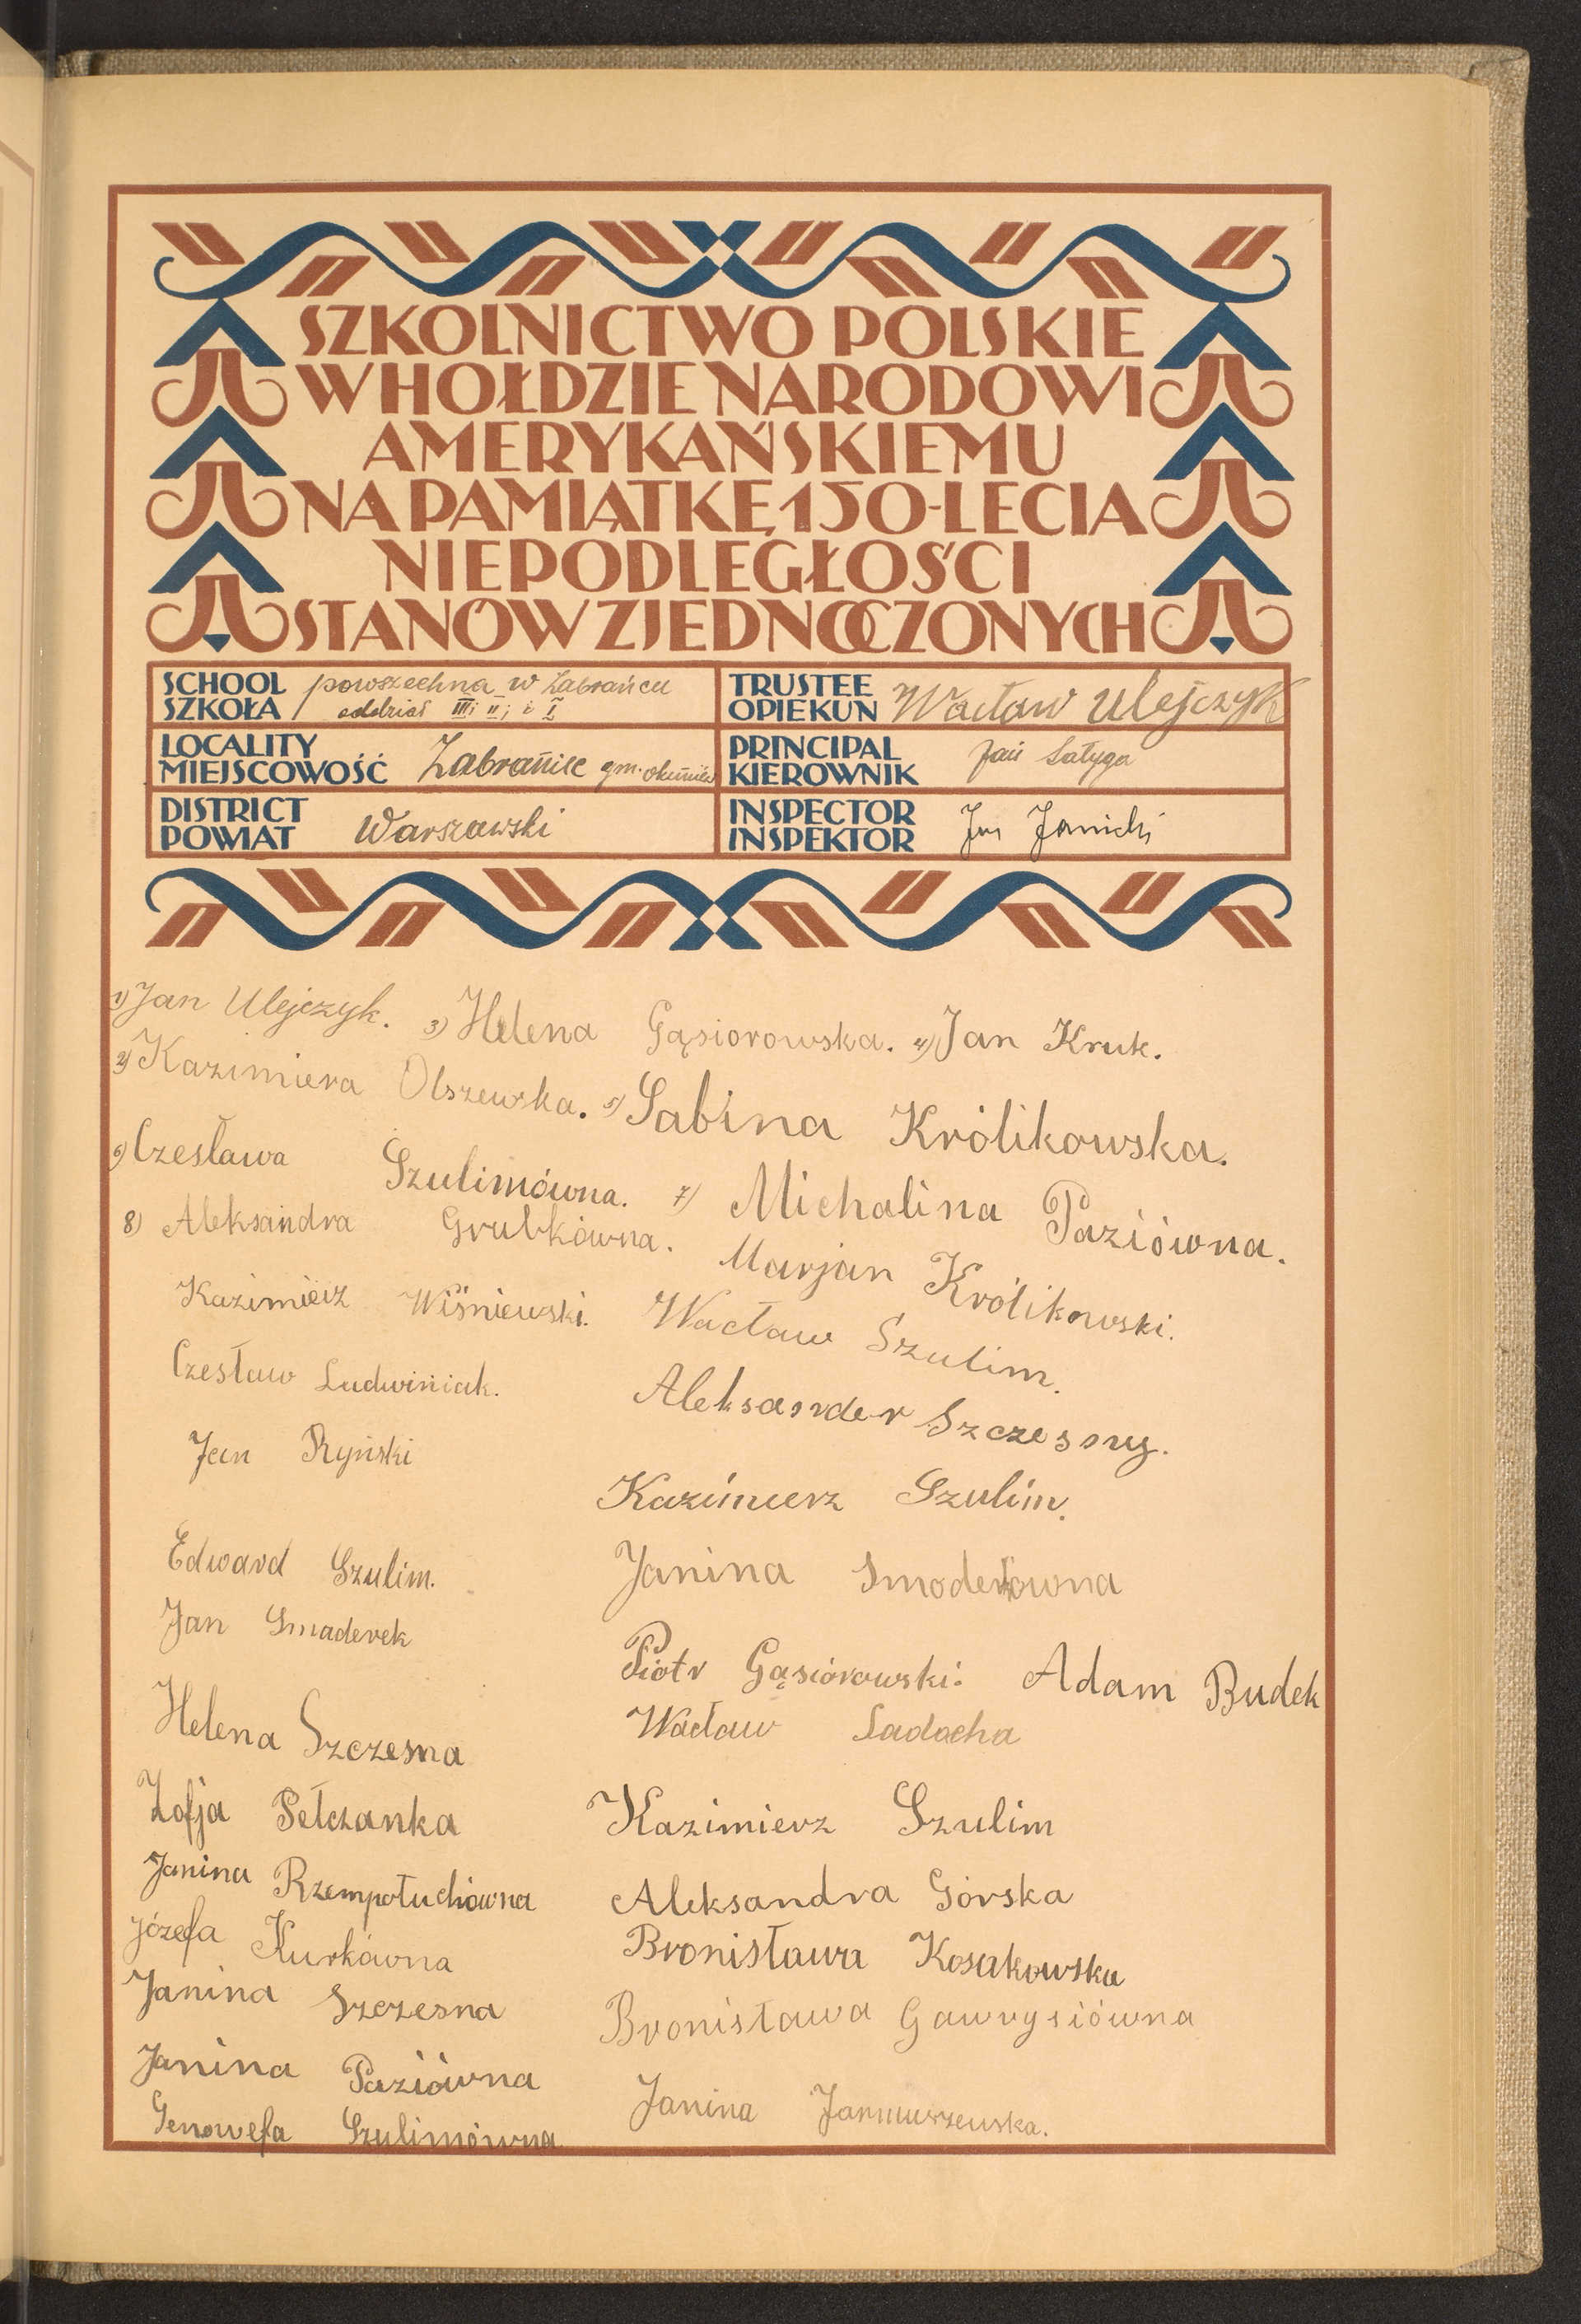 SZKOLNICTWO POLSKIE
W HOŁDZIE NARODOWI
AMERYKAŃSKIEMU
NA PAMIĄTKĘ 150-LECIA
NIEPODLEGŁOŚCI
STANÓW ZJEDNOCZONYCH
SCHOOL
SZKOŁA
powszechna w Zabrańcu
oddział III; II; i I
TRUSTEE
OPIEKUN
Wacław Ulejczyk
LOCALITY
MIEJSCOWOŚĆ
Zabraniec gm. Okuniew
PRINCIPAL
KIEROWNIK
Jan Sałyga
DISTRICT
POWIAT
Warszawski
INSPECTOR
INSPEKTOR
Jan Janicki
1) Jan Ulejczyk. 3) Helena Gąsiorowska. 4) Jan Kruk.
2) Kazimiera Olszewska. 5) Sabina Królikowska.
6) Czesława Szulimówna. 7) Michalina Paziówna.
8) Aleksandra Grubkówna. Marjan Królikowski.
Kazimierz Wiśniewski. Wacław Szulim.
Czesław Ludwiniak. Aleksander Szczesny.
Jan Ryński
Kazimierz Szulim.
Edward Szulim. Janina
Jan Smaderek
Piotr Gąsiórowski. Adam Budek
Helena Szczesna Wacław Sadocha
Zofja Pełczanka Kazimierz Szulim
Janina Rzempołuchówna Aleksandra Górska
Józefa Kurkówna Bronisława Kosakowska
Janina Szczesna Bronisława Gawrysiówna
Janina Paziówna Janina Januszewska.
Genowefa Szulimówna